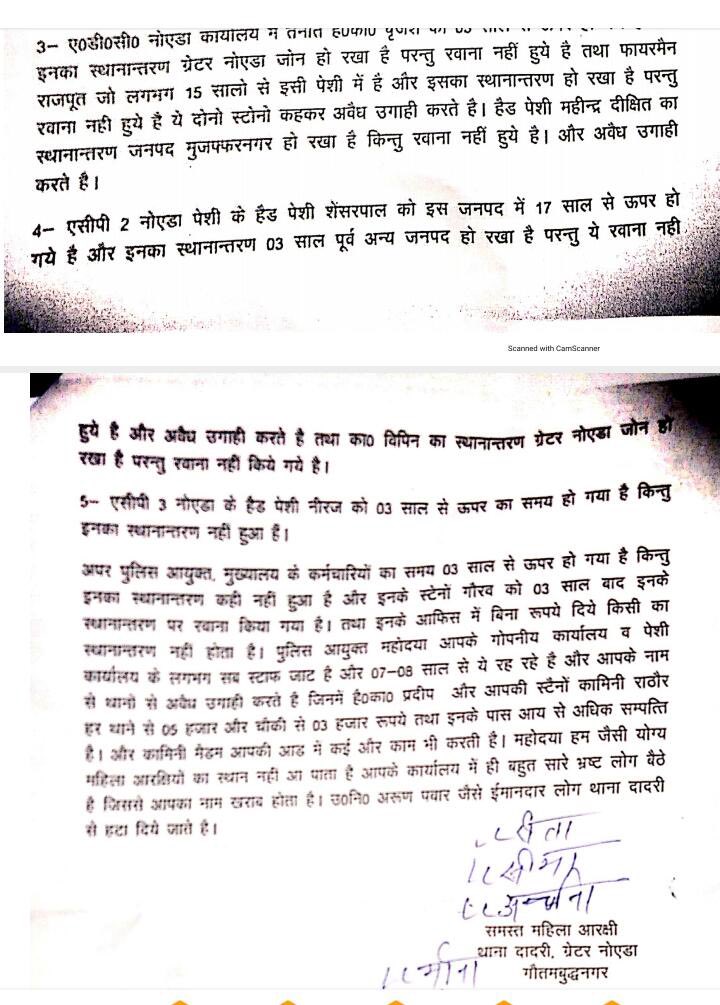 3– ए0डी0सी0 नोएडा कार्यालय में तैनात है0का0
इनका स्थानान्तरण ग्रेटर नोएडा जोन हो रखा है परन्तु रवाना नहीं हुये है तथा फायरमैन
राजपूत जो लगभग 15 सालो से इसी पेशी में है और इसका स्थानान्तरण हो रखा है परन्तु
रवाना नही हुये है ये दोनो स्टोनो कहकर अवैध उगाही करते है। हैड पेशी महीन्द्र दीक्षित का
स्थानान्तरण जनपद मुजफ्फरनगर हो रखा है किन्तु रवाना नहीं हुये है। और अवैध उगाही
करते है।
4– एसीपी 2 नोएडा पेशी के हैड पेशी शेंसरपाल को इस जनपद में 17 साल से ऊपर हो
गये है और इनका स्थानान्तरण 03 साल पूर्व अन्य जनपद हो रखा है परन्तु ये रवाना नही
Scanned with CamScanner
हुये है और अवैध उगाही करते है तथा का0 विपिन का स्थानान्तरण ग्रेटर नोएडा जोन हो
रखा है परन्तु रवाना नही किये गये है।
5– एसीपी 3 नोएडा के हैड पेशी नीरज को 03 साल से ऊपर का समय हो गया है किन्तु
इनका स्थानान्तरण नहीं हुआ है।
अपर पुलिस आयुक्त, मुख्यालय के कर्मचारियों का समय 03 साल से ऊपर हो गया है किन्तु
इनका स्थानान्तरण कही नहीं हुआ है और इनके स्टेनों गौरव को 03 साल बाद इनके
स्थानान्तरण पर रवाना किया गया है। तथा इनके आफिस में बिना रूपये दिये किसी का
स्थानान्तरण नहीं होता है। पुलिस आयुक्त महोदया आपके गोपनीय कार्यालय व पेशी
कार्यालय के लगभग सब स्टाफ जाट है और 07-08 साल से ये रह रहे है और आपके नाम
से थानो से अवैध उगाही करते है जिनमें है0का0 प्रदीप और आपकी स्टैनों कामिनी राठौर
हर थाने से 05 हजार और चौकी से 03 हजार रूपये तथा इनके पास आय से अधिक सम्पत्ति
है। और कामिनी मैडम आपकी आड में कई और काम भी करती है। महोदया हम जैसी योग्य
महिला आरक्षियों का स्थान नही आ पाता है आपके कार्यालय में ही बहुत सारे भ्रष्ट लोग बैठे
है जिससे आपका नाम खराब होता है। उ0नि0 अरूण पवार जैसे ईमानदार लोग थाना दादरी
से हटा दिये जाते है।
सीमा
अर्चना
समस्त महिला आरक्षी
थाना दादरी, ग्रेटर नोएडा
मीना गौतमबुद्धनगर